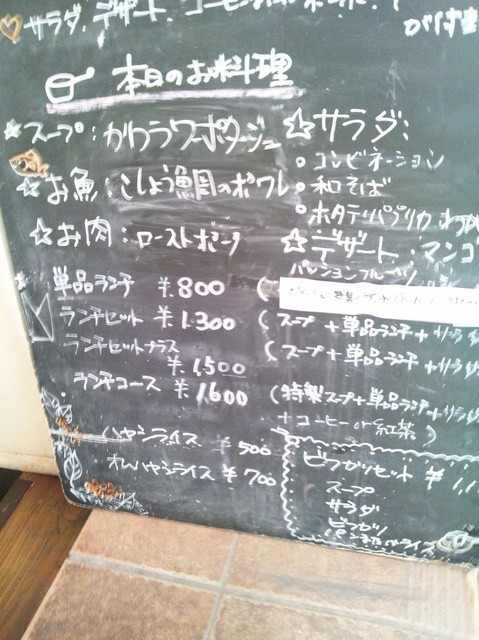 サラダ、デザート、コーヒー
がつきま
本日のお料理
☆スープ:かわラワーポタージュ
☆お魚:こしょう鯛のポワレ
☆お肉:ローストポーク
☆サラダ:
○コンビネーション
○和そば
○ホタテ・パプリカ
☆デザート:マンゴ
パッションフルーツ
単品ランチ ¥.800
ランチセット ¥.1.300 (スープ+単品ランチ+サラダ
ランチセットプラス
¥1,500 (スープ+単品ランチ+サラダ
ランチコース ¥.1,600 (特製スープ+単品ランチ+サラダ
+コーヒーor紅茶)
ハヤシライス ¥500
オムハヤシライス ¥700
ビフカツセット ¥
スープ
サラダ
ビフカツ
パンまたはライス